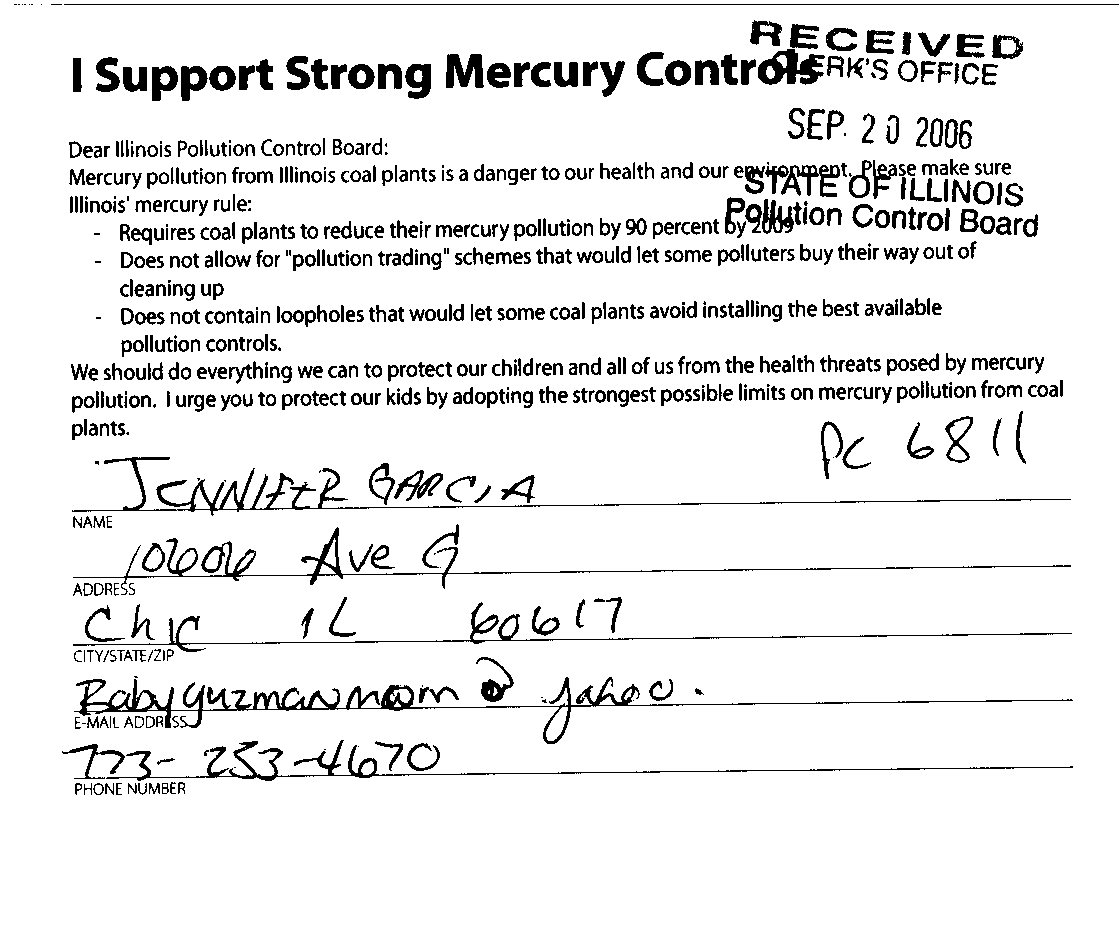 RECEIVED
CLERK'S OFFICE
I Support Strong Mercury Controls
SEP. 20 2006
Dear Illinois Pollution Control Board:
Mercury pollution from Illinois coal plants is a danger to our health and our environment. Please make sure
STATE OF ILLINOIS
Illinois' mercury rule:
Pollution Control Board
- Requires coal plants to reduce their mercury pollution by 90 percent by 2009
- Does not allow for "pollution trading" schemes that would let some polluters buy their way out of
cleaning up
- Does not contain loopholes that would let some coal plants avoid installing the best available
pollution controls.
We should do everything we can to protect our children and all of us from the health threats posed by mercury
pollution. I urge you to protect our kids by adopting the strongest possible limits on mercury pollution from coal
plants.
PC 6811
JENNIFER GARCIA
NAME
10606 Ave G
ADDRESS
Chic IL 60617
CITY/STATE/ZIP
Babyguzmanmom @ yahoo.
E-MAIL ADDRESS
773-253-4670
PHONE NUMBER